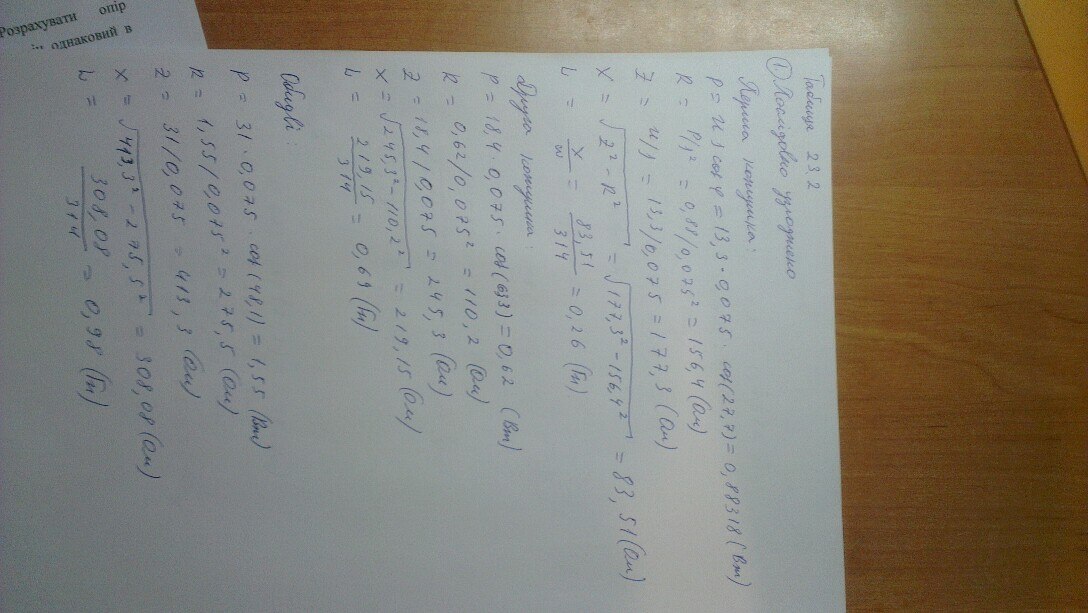 Розрахувати опір
однаковий в
Таблиця 23.2
① Послідовно узгоджено
Перша котушка:
P = U I cos φ = 13,3 · 0,075 · cos(27,7) = 0,88318 (Вт)
R = P/I² = 0,88/0,075² = 156,4 (Ом)
Z = U/I = 13,3/0,075 = 177,3 (Ом)
X = √Z² - R² = √177,3² - 156,4² = 83,51 (Ом)
L = X/ω = 83,51/314 = 0,26 (Гн)
Друга котушка:
P = 18,4 · 0,075 · cos(63,3) = 0,62 (Вт)
R = 0,62/0,075² = 110,2 (Ом)
Z = 18,4/0,075 = 245,3 (Ом)
X = √245² - 110,2² = 219,15 (Ом)
L = 219,15/314 = 0,69 (Гн)
Обидві:
P = 31 · 0,075 · cos(48,1) = 1,55 (Вт)
R = 1,55/0,075² = 275,5 (Ом)
Z = 31/0,075 = 413,3 (Ом)
X = √413,3² - 275,5² = 308,08 (Ом)
L = 308,08/314 = 0,98 (Гн)